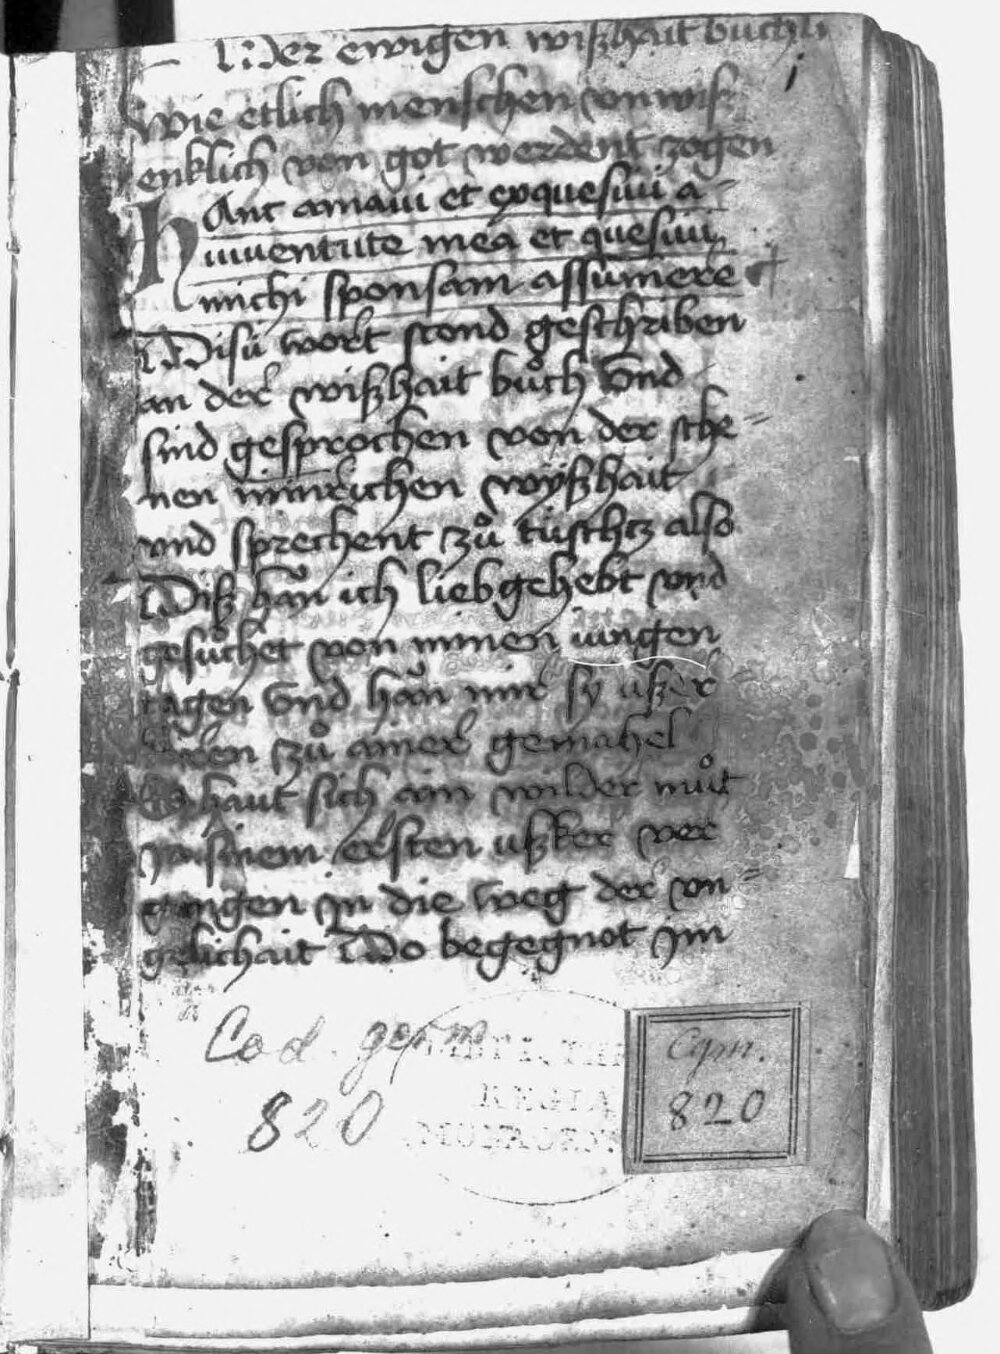 Der ewigen wißhait büchli
j
Wie etlich menschen vnwiß
enklich von got werdent zogen
Hanc amavi et exquesiui a
iuuentute mea et quesiui
michi sponsam assumere
Disü wort stond geschriben
an der wißhait bůch vnd
sind gesprochen von der schö=
nen minrichen wyßhait
vnd sprechent zů tüschtz also
Diß han ich lieb gehebt vnd
gesůchet von minen iungen
tagen vnd han mir sy vßer
zů ainer gemahel
Es haut sich ain wilder můt
in sinem ersten vßker ver
gangen in die weg der vn=
gelichait Do begegnot im
Cod. germ
820
Cgm.
820